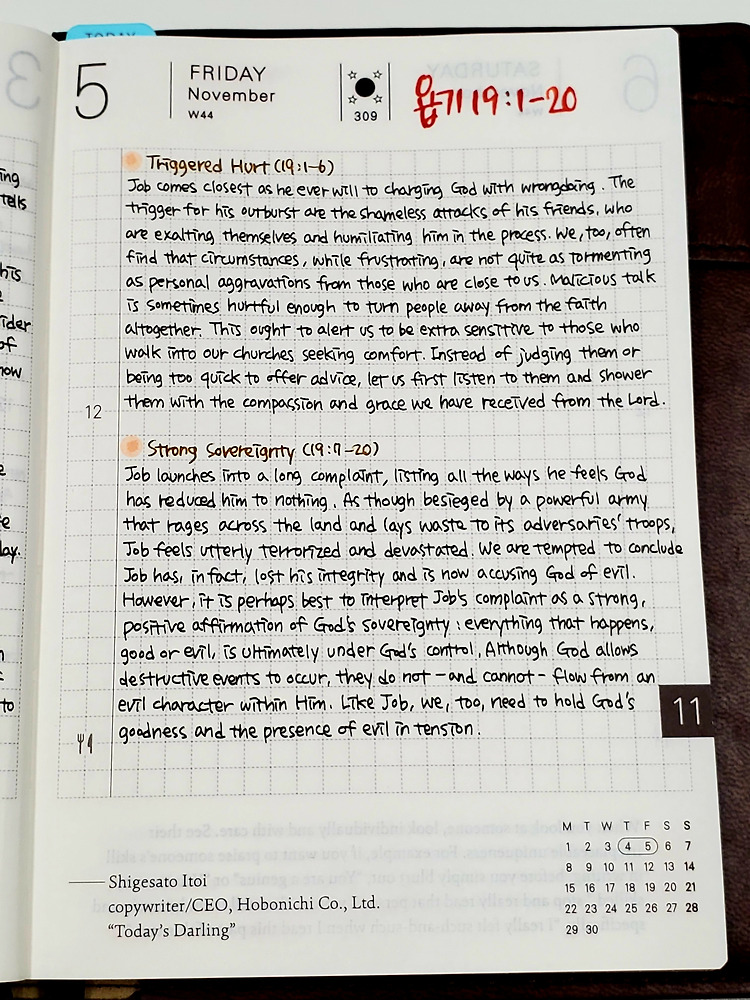 TODAY
5
FRIDAY
November
W44
309
욥기 19:1-20
Triggered Hurt (19:1-6)
Job comes closest as he ever will to charging God with wrongdoing. The
trigger for his outburst are the shameless attacks of his friends, who
are exalting themselves and humiliating him in the process. We, too, often
find that circumstances, while frustrating, are not quite as tormenting
as personal aggravations from those who are close to us. Malicious talk
is sometimes hurtful enough to turn people away from the faith
altogether. This ought to alert us to be extra sensitive to those who
walk into our churches seeking comfort. Instead of judging them or
being too quick to offer advice, let us first listen to them and shower
them with the compassion and grace we have received from the Lord.
12
Strong Sovereignty (19:7-20)
Job launches into a long complaint, listing all the ways he feels God
has reduced him to nothing. As though besieged by a powerful army
that rages across the land and lays waste to its adversaries' troops,
Job feels utterly terrorized and devastated. We are tempted to conclude
Job has, in fact, lost his integrity and is now accusing God of evil.
However, it is perhaps best to interpret Job's complaint as a strong,
positive affirmation of God's sovereignty: everything that happens,
good or evil, is ultimately under God's control. Although God allows
destructive events to occur, they do not - and cannot - flow from an
evil character within Him. Like Job, we, too, need to hold God's
goodness and the presence of evil in tension.
11
M T W T F S S
1 2 3 4 5 6 7
8 9 10 11 12 13 14
15 16 17 18 19 20 21
22 23 24 25 26 27 28
29 30
—— Shigesato Itoi
copywriter/CEO, Hobonichi Co., Ltd.
“Today's Darling”